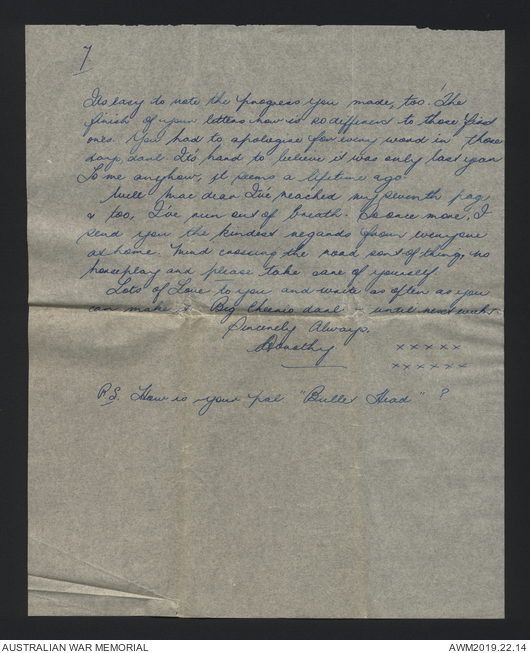 7
Its easy to note the progress you made, too. The
finish of your letters now is so different to those first
ones. You had to apologise for every word in those
days, darl. Its hard to believe it was only last year
To me anyhow, it seems a lifetime ago.
Well Mac dear I've reached my seventh page
& too, I've run out of breath. So once more, I
send you the kindest regards from everyone
at home. Mind crossing the road sort of thing, no
horseplay and please take care of yourself.
Lots of Love to you and write as often as you
can make it. Big Cheerio darl - until next week
Sincerely Always.
Dorothy x x x x x
x x x x x x
P.S. How is your pal "Bullet Head" ?
AUSTRALIAN WAR MEMORIAL
AWM2019.22.14